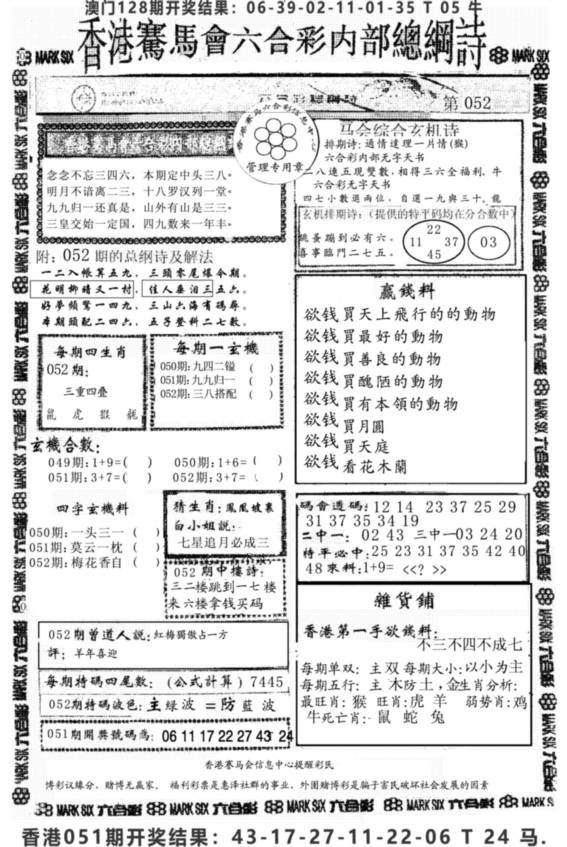 澳门128期开奖结果：06-39-02-11-01-35 T 05 牛
香港賽馬會六合彩内部總綱詩
MARK SIX
MARK SIX
第 052
香港赛马会六合彩信息中心
管理专用章
念念不忘三四六，本期定中头三八。
明月不谙离二三，十八罗汉列一堂。
九九归一还真是，山外有山是三三。
三皇交始一定国，四九数来一年丰。
附：052 期的总纲诗及解法
一二入帐算五九，三頭零尾爆今期。
花明柳晴又一村，佳人要泪三五六。
好夢頻驚一四九，三山六海有碼尋。
本期頭配二四六，五子登科二七数。
马会综合玄机诗
排期诗：通情達理一片情(猴)
六合彩内部无字天书
二八連五現雙數，相得三六全福利. 牛
六合彩无字天书
四七小數退兩位，自選一九與三十. 龍
玄机排期诗：(提供的特平码均在分合数中)
跳蚤蹦到必有六。
喜事臨門二七五。
22
11 37
45
03
每期四生肖
052期：
三重四叠
鼠 虎
每期一玄機
050期：九四二镒 ( )
051期：九九归一 ( )
052期：三八搭配 ( )
玄機合數：
049期：1+9=( ) 050期：1+6=( )
051期：3+7=( ) 052期：3+7=( )
赢錢料
欲钱買天上飛行的的動物
欲钱買最好的動物
欲钱買善良的動物
欲钱買醜陋的動物
欲钱買有本領的動物
欲钱買月圓
欲钱買天庭
欲钱看花木蘭
四字玄機料
050期：一头三一 ( )
051期：莫云一枕 ( )
052期：梅花香自 ( )
猜生肖：鳳凰披裹
白小姐説：
七星追月必成三
052 期中樓詩：
三二楼跳到一七楼
来六楼拿钱买码
碼會選碼：12 14 23 37 25 29
31 37 35 34 19
二中一：02 43 三中一03 24 20
特平必中：25 23 31 37 35 42 40
48來料：1+9= <<? >>
052期曾道人説：紅梅獨傲占一方
評：羊年喜迎
每期特碼四尾数：(公式計算) 7445
052期特碼波色：主綠波 =防藍波
051期開奬號碼爲：06 11 17 22 27 43 24
雜貨鋪
香港第一手欲錢料：
不三不四不成七
每期单双：主双 每期大小：以小为主
每期五行：主木防土，金生肖分析：
最旺肖：猴 旺肖：虎 羊 弱势肖：鸡
牛死亡肖：鼠 蛇 兔
香港赛马会信息中心提醒彩民
博彩议缘分，赌博无赢家。福利彩票是惠泽社群的事业，外圍賭博彩是騙子害民破坏社会发展的因素
MARK SIX 六合彩 MARK SIX 六合彩 MARK SIX 六合彩 MARK SIX 六合彩 MARK SIX
香港051期开奖结果：43-17-27-11-22-06 T 24 马.